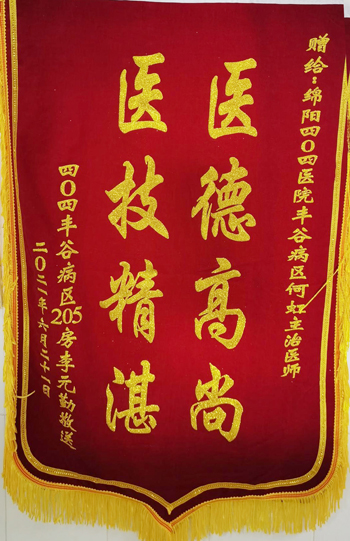 赠给:绵阳四〇四医院丰谷病区何虹主治医师
医德高尚
医技精湛
四〇四丰谷病区205房李元勤敬送
二〇二一年六月二十一日